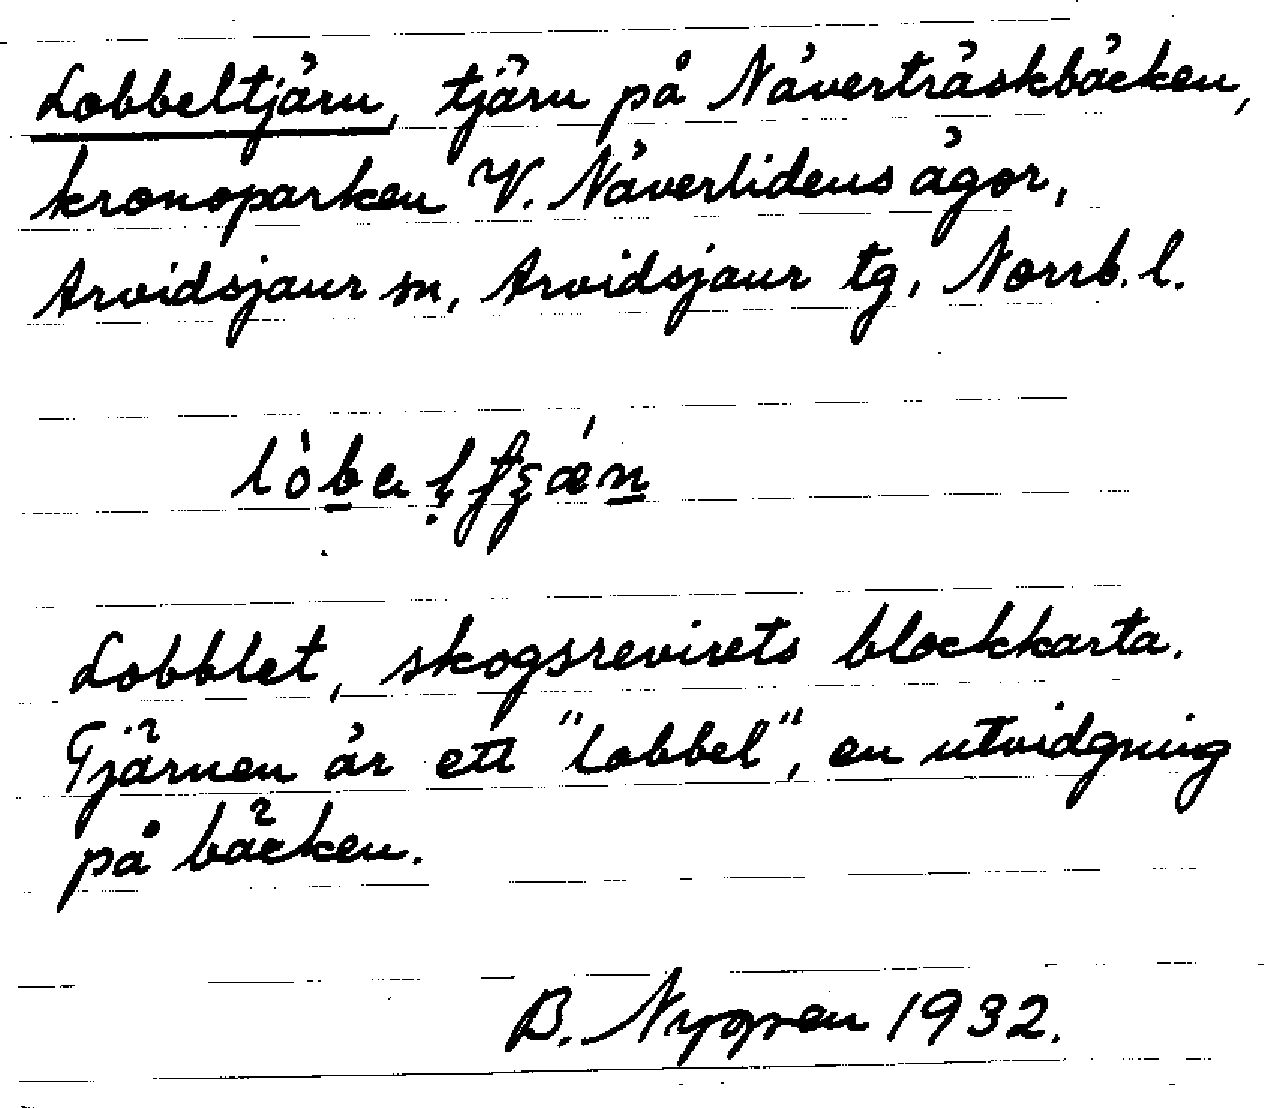 Lobbeltjärn, tjärn på Näverträskbäcken,
kronoparken V. Näverlidens ägor,
Arvidsjaur sn, Arvidsjaur tg, Norrb. l.
Lobblet, skogsrevirets blockkarta.
Tjärnen är ett "lobbel", en utvidgning
på bäcken.
B. Nygren 1932.